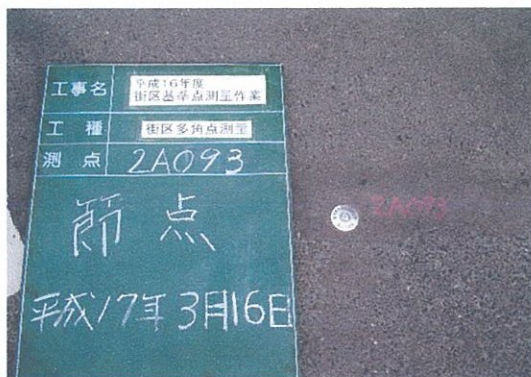 工事名
平成16年度
街区基準点測量作業
工種
街区多角点測量
測点 2A093
節点
平成17年3月16日
2A093